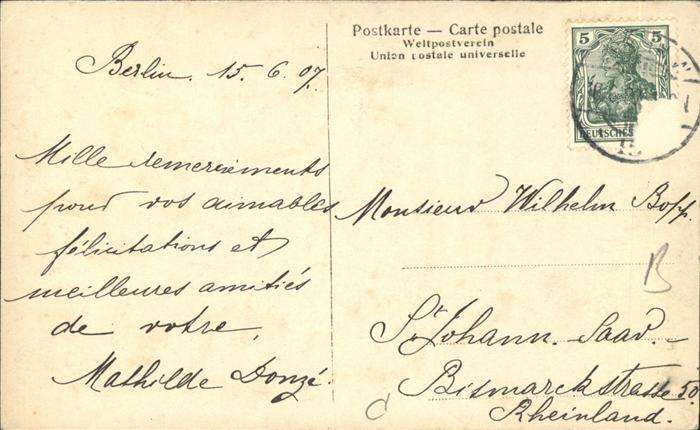 Postkarte — Carte postale
Weltpostverein
Union postale universelle
5 5
DEUTSCHES
Berlin. 15. 6. 07.
Mille remerciements
pour vos aimables
félicitations et
meilleures amitiés
de votre,
Mathilde Donzé.
Monsieur Wilhelm Bopp.
B
St. Johann. Saar. -
Bismarckstrasse 50.
Rheinland.